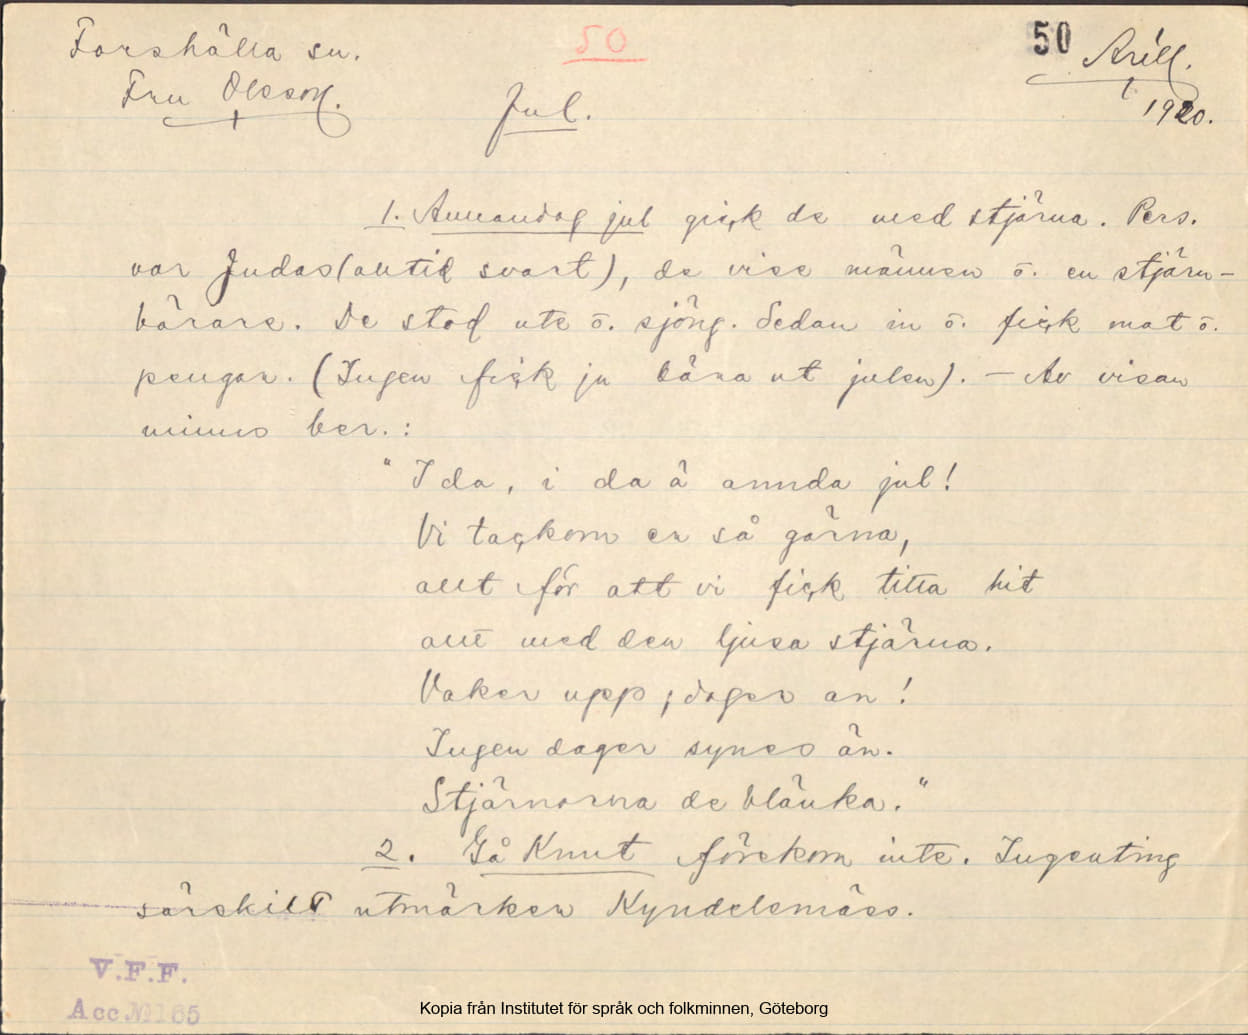 Forshälla sn.
50
50 Arill.
Fru Olsson.
Jul.
1920.
1. Annandag jul gick de med stjärna. Pers.
var Judas (alltid svart), de vise männen o. en stjärn-
bärare. De stod ute o. sjöng. Sedan in o. fick mat o.
pengar. (Ingen fick ju bära ut julen). – Av visan
minns ber.:
"I da, i da ä annda jul!
Vi tackom er så gärna,
allt för att vi fick titta hit
allt med den ljusa stjärna.
Vaker upp, dager an!
Ingen dager synes än.
Stjärnorna de blänka."
2. Gå Knut förekom inte. Ingenting
särskilt utmärker Kyndelsmäss.
V.F.F.
Acc № 165
Kopia från Institutet för språk och folkminnen, Göteborg